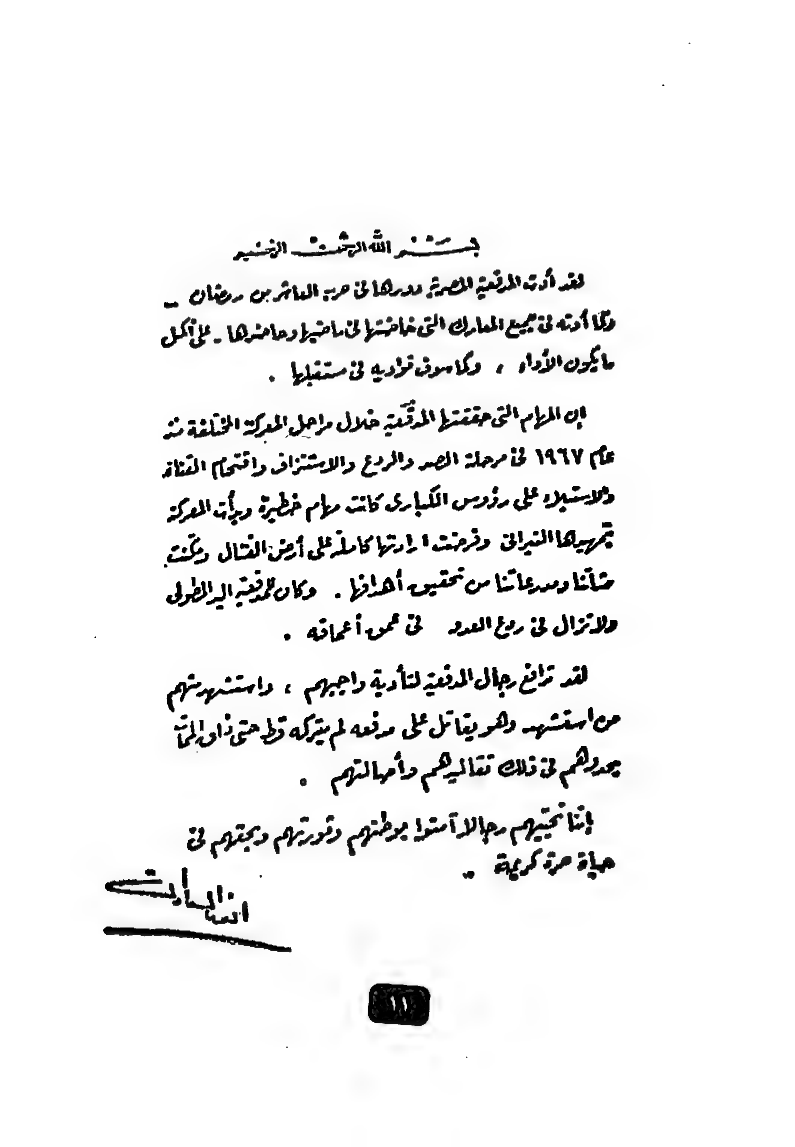 بسم الله الرحمن الرحيم
لقد أدت المدفعية المصرية دورها فى حرب العاشر من رمضان ــ
وكما أدته فى جميع المعارك التى خاضتها فى ماضيها وحاضرها ـ على أكمل
ما يكون الأداء ، وكما سوف تؤديه فى مستقبلها .
إن المهام التى حققتها المدفعية خلال مراحل المعركة المختلفة منذ
عام ١٩٦٧ فى مرحلة الصد والردع والاستنزاف واقتحام القناة
والاستيلاء على رؤوس الكبارى كانت مهام خطيرة وبدأت المعركة
بتمهيدها النيرانى وفرضت ارادتها كاملة على أرض القتال ومكنت
مشاتنا ومدرعاتنا من تحقيق أهدافها . وكان للمدفعية اليد الطولى
ولا تزال فى ردع العدو فى عمق أعماقه .
لقد ترافع رجال المدفعية لتأدية واجبهم ، واستشهد منهم
من استشهد وهو يقاتل على مدفعه لم يتركه قط حتى ذاق الممات
يحدوهم فى ذلك تقاليدهم وأصالتهم .
إننا نحييهم رجالا آمنوا بوطنهم وثورتهم وبحقهم فى
حياة حرة كريمة ..
أنور السادات
١١